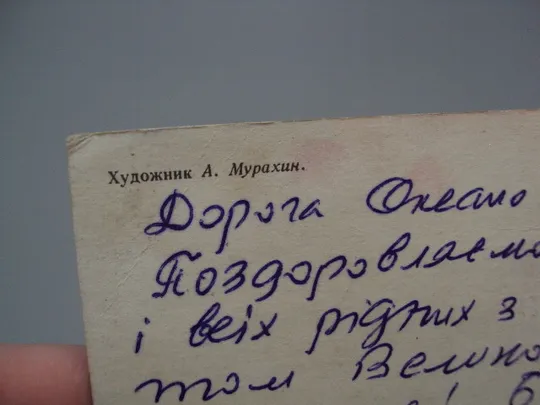 Художник А. Мурахин.
Дорога Оксано
Поздоровляємо
і всіх рідних з
том Велико
і Б